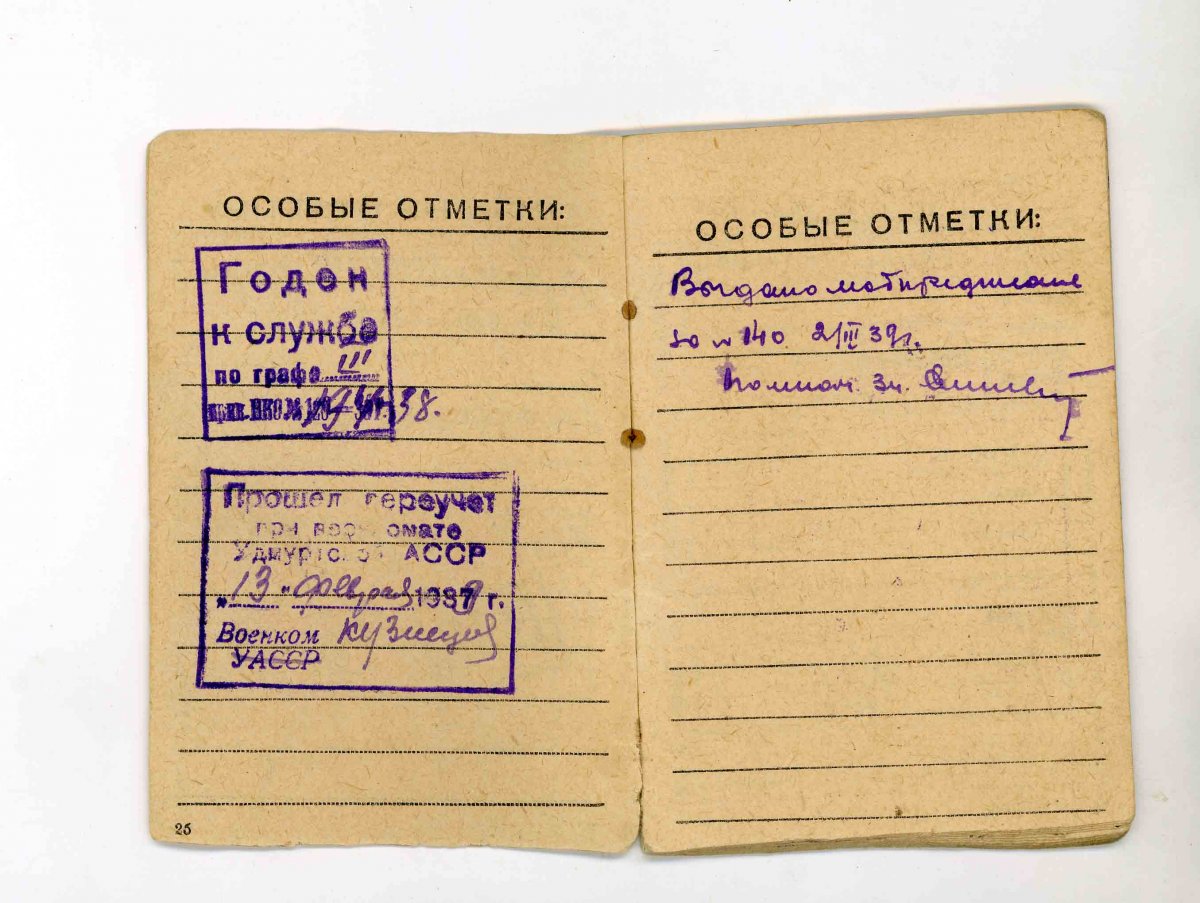 ОСОБЫЕ ОТМЕТКИ:
Годен
к службе
по графе III
38.
Прошел переучет
при военкомате
Удмуртской АССР
„13" февраля 1939 г.
Военком Кузнецов
УАССР
25
ОСОБЫЕ ОТМЕТКИ:
Выдано мобпредписание
за № 140 2/III 39 г.